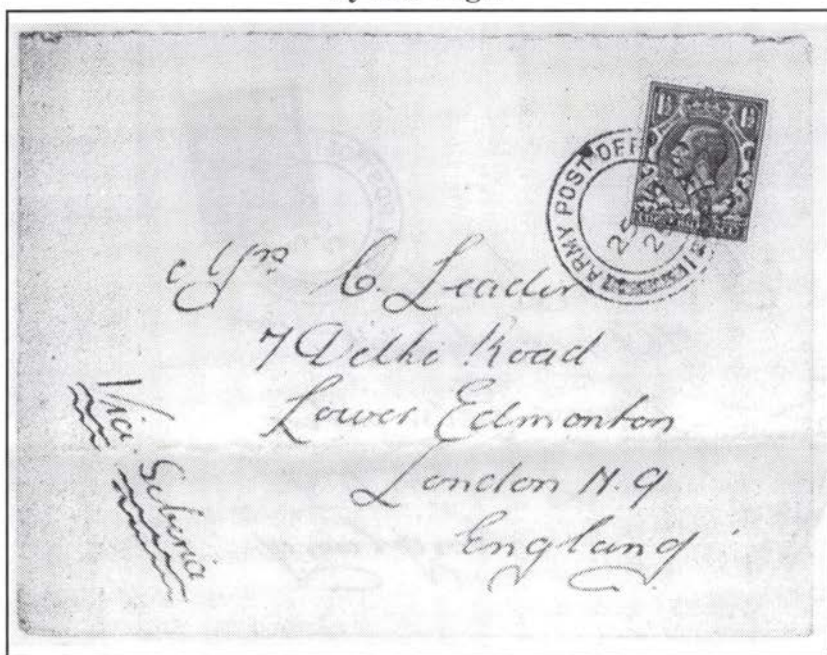 1½ 1½
ARMY POST OFFICE
25
Mrs C. Leader
7 Delhi Road
Lower Edmonton
London N.9
England
Via Siberia